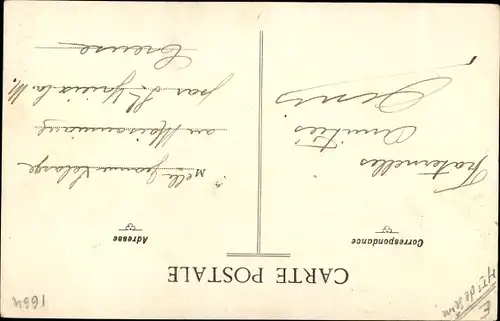 CARTE POSTALE
Correspondance
Adresse
Fraternelles
Amitiés
Melle Jeanne Lelarge
au Maisonniaux
par St Yrieix la M.
Creuse
1664